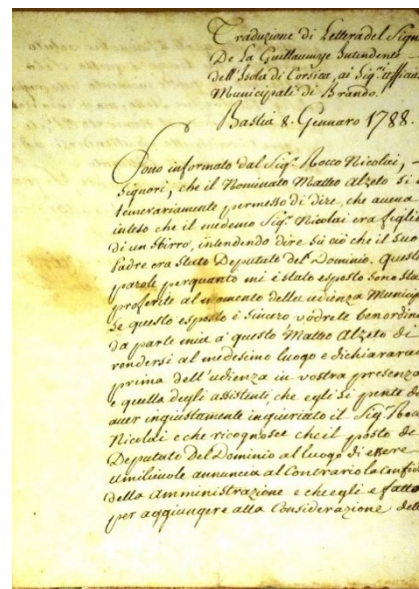 Traduzione di Lettera del Sign
De La Guillaumye Intendente
dell'Isola di Corsica, ai Sig.ri Uffici
Municipali di Brando.
Bastia 8. Gennaro 1788.
Sono informato dal Sig.r Rocco Nicolai, –
Signori, che il Nominato Matteo Alzeto si è
temerariamente permesso di dire, che aveva
inteso che il medemo Sig.r Nicolai era figli
di un sbirro, intendendo dire sù ciò che il suo
Padre era stato Deputato del Dominio. Queste
parole perquanto mi è stato esposto sono sta
proferite al momento della udienza Municip
se questo esposto è sincero vodrete ben ordina
da parte mia a' questo Matteo Alzeto de
rendersi al medesimo luogo e dichiarara
prima dell'udienza in vostra presenza
e quella degli assistenti, che egli si pente de
aver ingiustamente ingiuriato il Sig.r Roc
Nicolai e che ricognosce che il posto de
Deputato del Dominio al luogo di essere
umilievole annuncia al Contrario la Confid
della Amministrazione e che egli è fatto
per aggiungere alla Considerazione dell